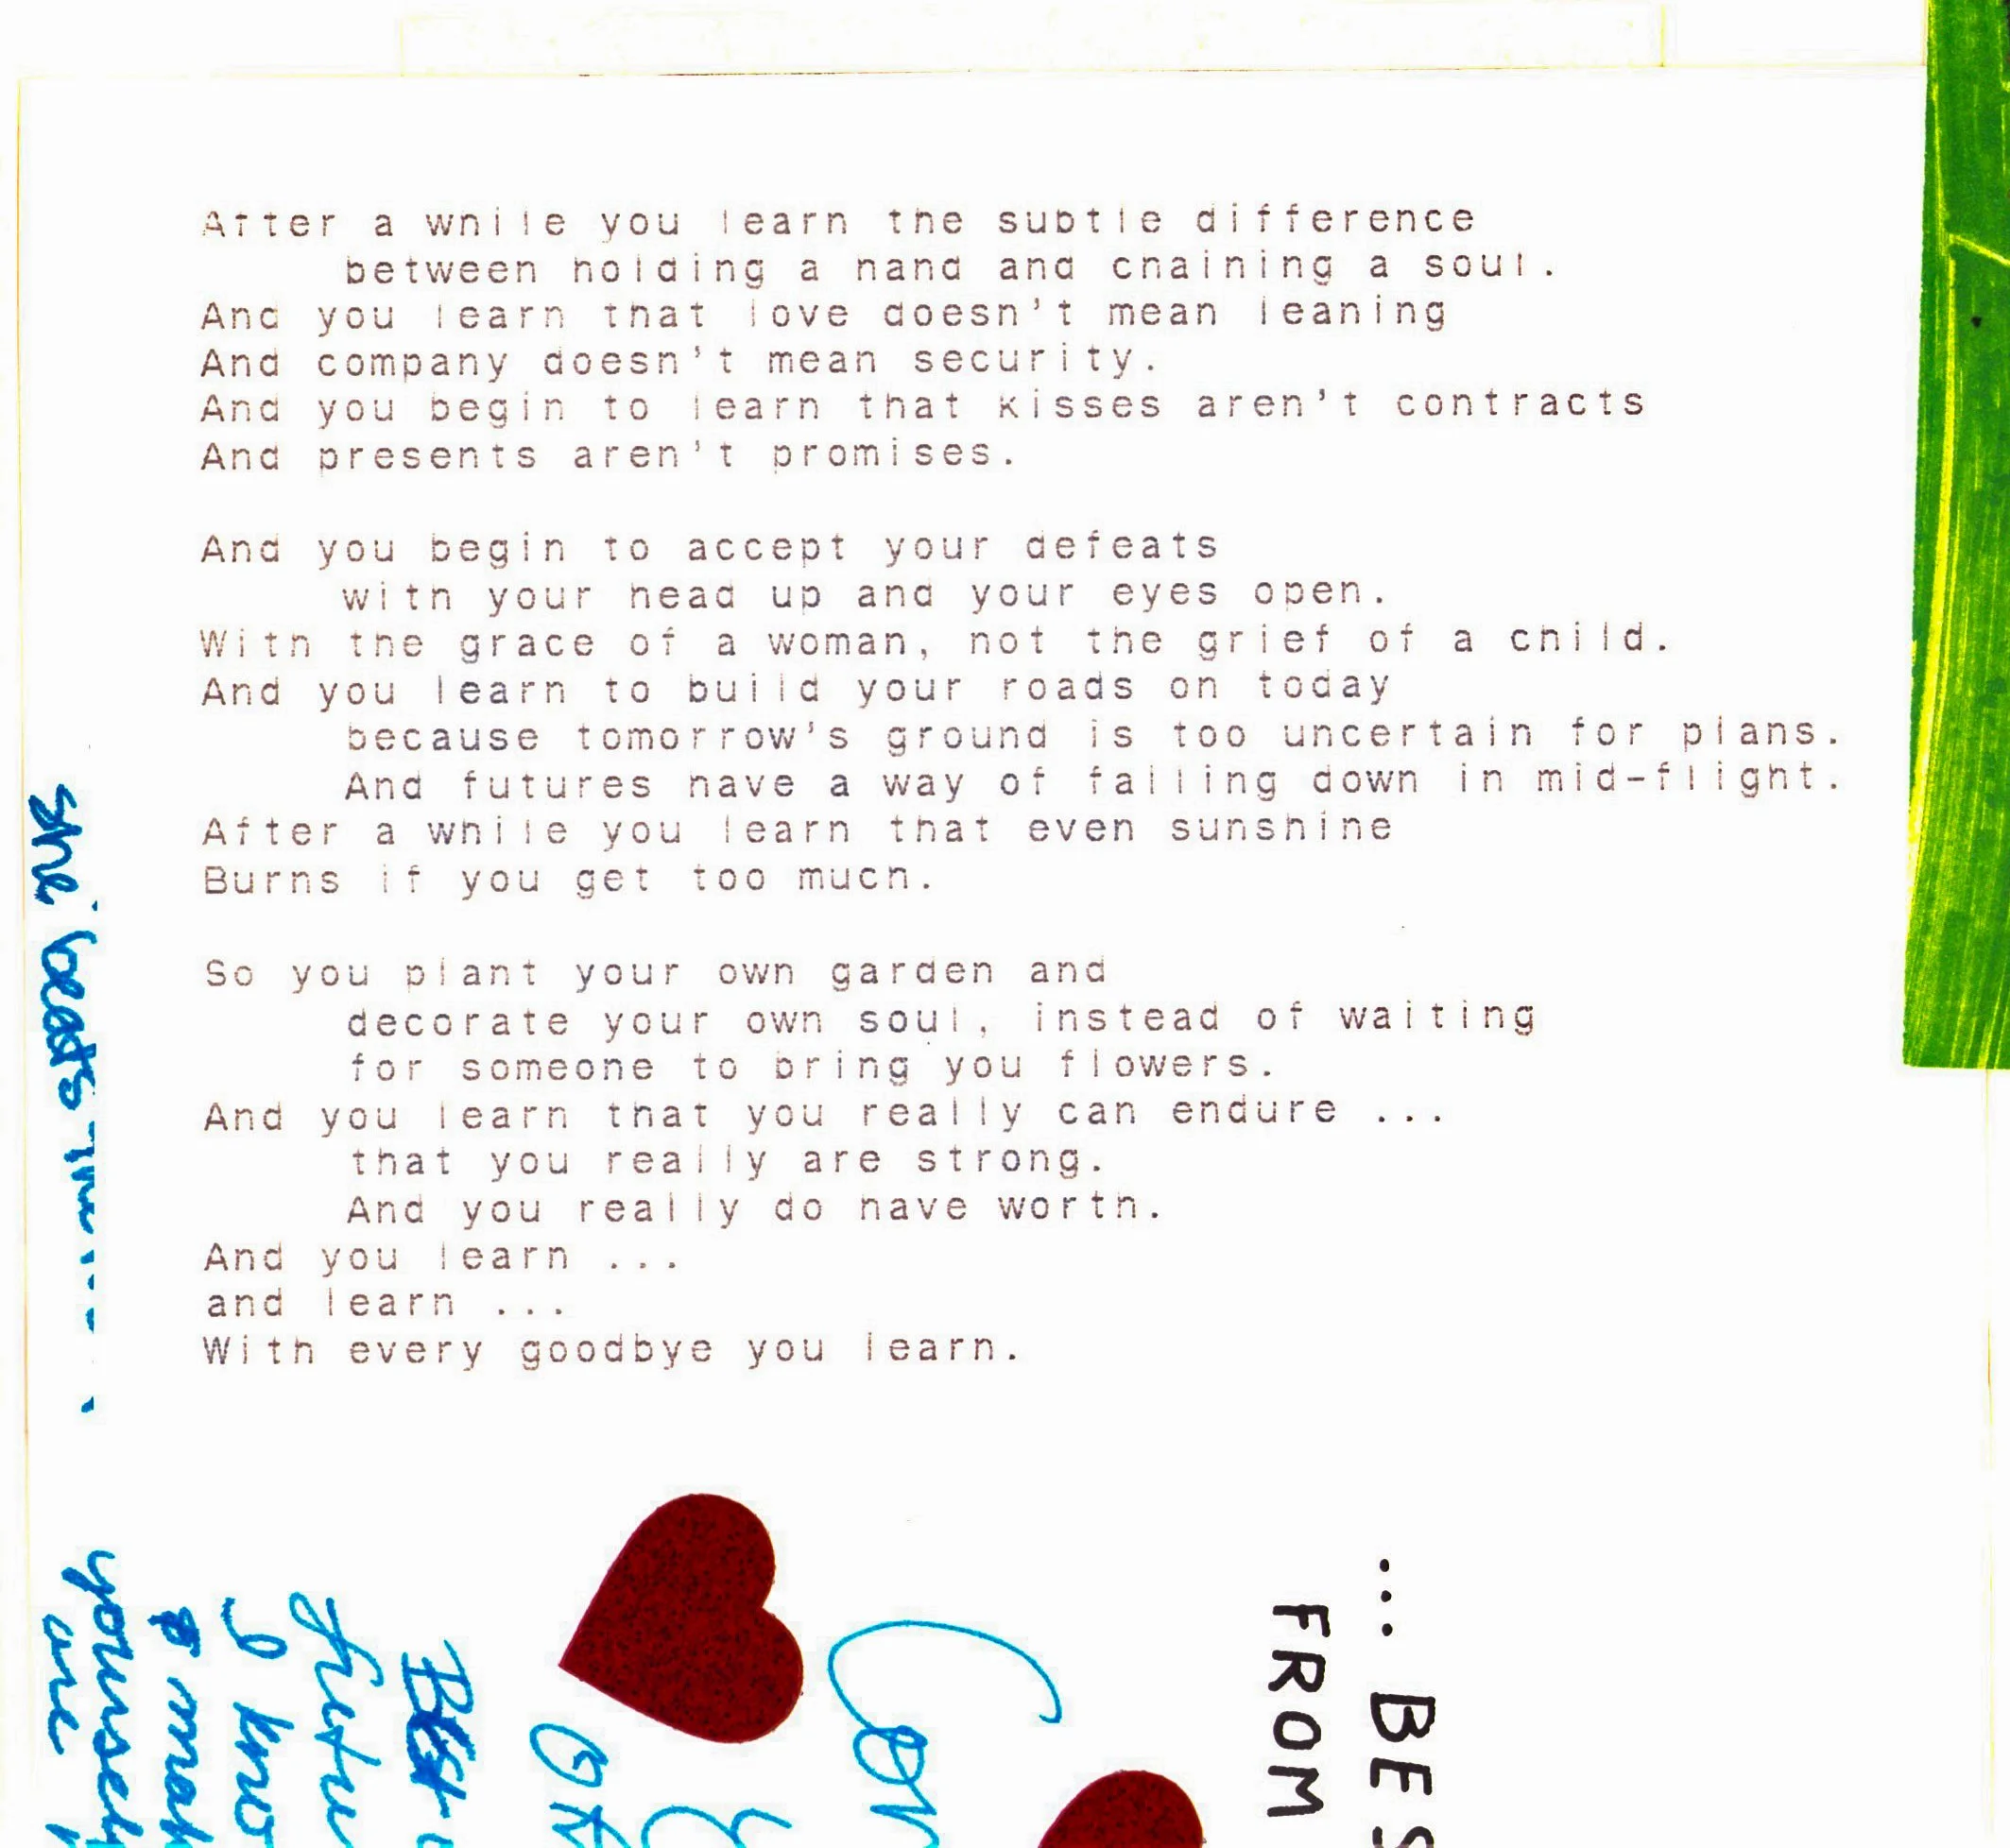 After a while you learn the subtle difference
between holding a hand and chaining a soul.
And you learn that love doesn't mean leaning
And company doesn't mean security.
And you begin to learn that kisses aren't contracts
And presents aren't promises.
And you begin to accept your defeats
with your head up and your eyes open.
With the grace of a woman, not the grief of a child.
And you learn to build your roads on today
because tomorrow's ground is too uncertain for plans.
And futures have a way of falling down in mid-flight.
After a while you learn that even sunshine
Burns if you get too much.
So you plant your own garden and
decorate your own soul, instead of waiting
for someone to bring you flowers.
And you learn that you really can endure ...
that you really are strong.
And you really do have worth.
And you learn ...
and learn ...
With every goodbye you learn.
... BES
FROM
Best
I kno
yourself